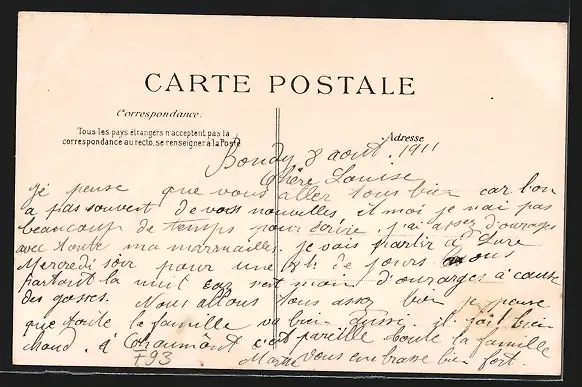 CARTE POSTALE
Correspondance:
Tous les pays étrangers n'acceptent pas la
correspondance au recto, se renseigner à la Poste
Adresse
Bondy 8 aout 1911
Chère Louise
Je pense que vous aller tous bien car l'on
a pas souvent de vos nouvelles, et moi je n'ai pas
beaucoup de temps pour écrire, j'ai assez d'ouvrages
avec toute ma marmailles. je vais partir à Lure
Mercredi soir pour une de jours nous
partont la nuit car s'est moin d'ouvrages à cause
des gosses. Nous allons tous assez bien je pense
que toute la famille va bien aussi. il fait bien
chaud. à Chaumont c'est pareille toute la famille
F93 Marie vous embrasse bien fort.